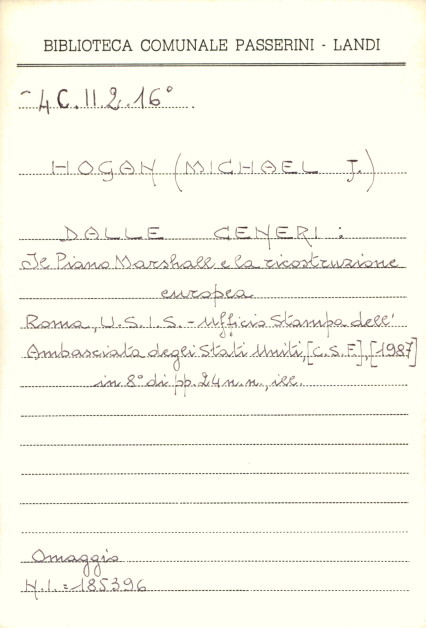 BIBLIOTECA COMUNALE PASSERINI - LANDI
4C.II.2.16°
HOGAN (MICHAEL J.)
DALLE CENERI:
Il Piano Marshall e la ricostruzione
europea
Roma, U.S.I.S. - Ufficio Stampa dell'
Ambasciata degli Stati Uniti, [C.S.F.], [1987]
in 8° di pp. 24 n.n., ill.
Omaggio
N.I. = 185396